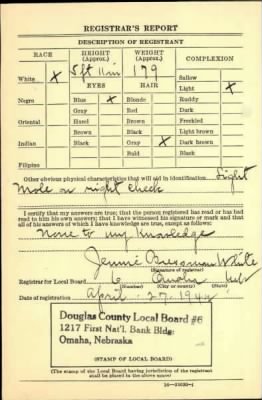 REGISTRAR'S REPORT
DESCRIPTION OF REGISTRANT
RACE HEIGHT (Approx.) WEIGHT (Approx.) COMPLEXION
5 ft 11 in 179
White X EYES HAIR Sallow
Light X
Negro Blue X Blonde Ruddy
Gray Red Dark
Oriental Hazel Brown Freckled
Brown Black Light brown
Indian Black Gray X Dark brown
Bald Black
Filipino
Other obvious physical characteristics that will aid in identification Light
Mole on right cheek
I certify that my answers are true; that the person registered has read or has had
read to him his own answers; that I have witnessed his signature or mark and that
all of his answers of which I have knowledge are true, except as follows:
None to my knowledge
Jennie White
(Signature of registrar)
Registrar for Local Board 6 Omaha Neb
(Number) (City or county) (State)
Date of registration April 27 1942
Douglas County Local Board #6
1217 First Nat'l. Bank Bldg.
Omaha, Nebraska
(STAMP OF LOCAL BOARD)
(The stamp of the Local Board having jurisdiction of the registrant
shall be placed in the above space)